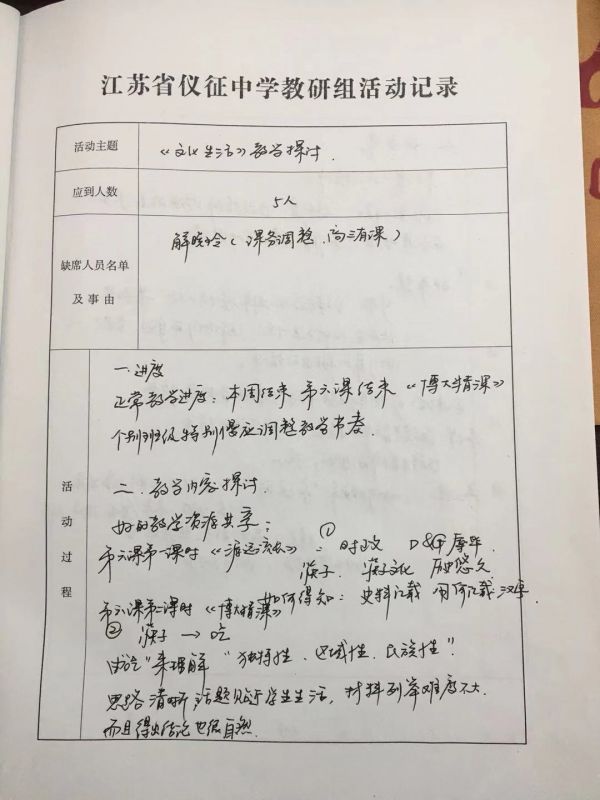 江苏省仪征中学教研组活动记录
活动主题 《文化生活》教学探讨.
应到人数 5人
缺席人员名单及事由 解晓玲（课务调整、高三有课）
活动过程
一.进度
正常教学进度：本周结束 第六课结束 《博大精深》
个别班级特别慢应调整教学节奏.
二.教学内容探讨.
好的教学资源共享：
第六课第一课时《源远流长》：① 时政 D&G 辱华
筷子. 筷子文化 历史悠久
如何得知：史料记载 用何记载 汉字
第六课第二课时《博大精深》
② 筷子 → 吃
由“吃”来理解“独特性、区域性、民族性”.
思路清晰，话题贴近学生生活，材料列举难度不大
而且得出结论也很自然.